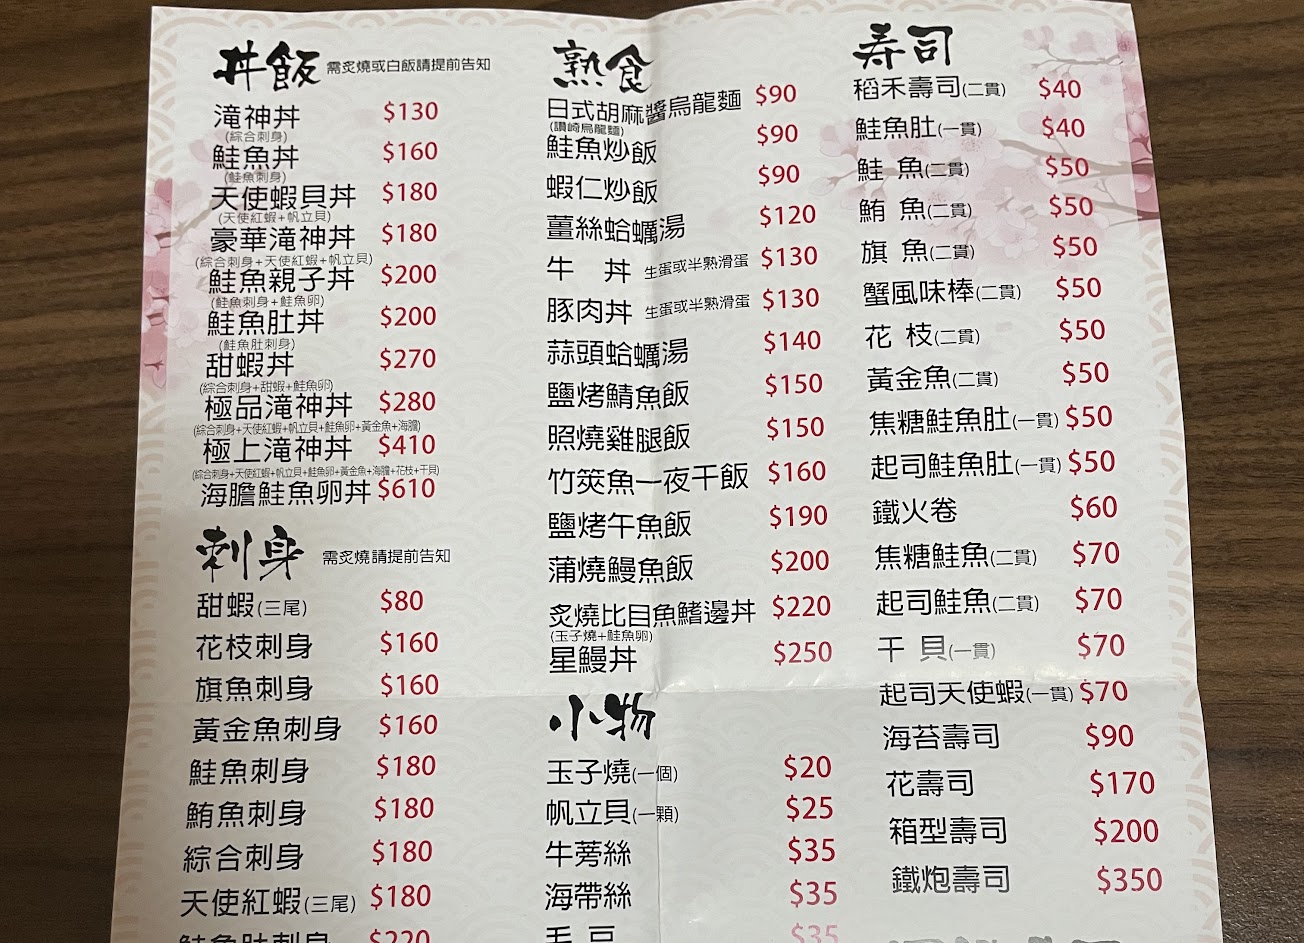 丼飯 需炙燒或白飯請提前告知
滝神丼 $130
(綜合刺身)
鮭魚丼 $160
(鮭魚刺身)
天使蝦貝丼 $180
(天使紅蝦+帆立貝)
豪華滝神丼 $180
(綜合刺身+天使紅蝦+帆立貝)
鮭魚親子丼 $200
(鮭魚刺身+鮭魚卵)
鮭魚肚丼 $200
(鮭魚肚刺身)
甜蝦丼 $270
(綜合刺身+甜蝦+鮭魚卵)
極品滝神丼 $280
(綜合刺身+天使紅蝦+帆立貝+鮭魚卵+黃金魚+海膽)
極上滝神丼 $410
(綜合刺身+天使紅蝦+帆立貝+鮭魚卵+黃金魚+海膽+花枝+干貝)
海膽鮭魚卵丼 $610
刺身 需炙燒請提前告知
甜蝦(三尾) $80
花枝刺身 $160
旗魚刺身 $160
黃金魚刺身 $160
鮭魚刺身 $180
鮪魚刺身 $180
綜合刺身 $180
天使紅蝦(三尾) $180
鮭魚肚刺身 $220
熟食
日式胡麻醬烏龍麵 $90
(讚崎烏龍麵)
鮭魚炒飯 $90
蝦仁炒飯 $90
薑絲蛤蠣湯 $120
牛 丼 生蛋或半熟滑蛋 $130
豚肉丼 生蛋或半熟滑蛋 $130
蒜頭蛤蠣湯 $140
鹽烤鯖魚飯 $150
照燒雞腿飯 $150
竹筴魚一夜干飯 $160
鹽烤午魚飯 $190
蒲燒鰻魚飯 $200
炙燒比目魚鰭邊丼 $220
(玉子燒+鮭魚卵)
星鰻丼 $250
小物
玉子燒(一個) $20
帆立貝(一顆) $25
牛蒡絲 $35
海帶絲 $35
毛 豆 $35
寿司
稻禾壽司(二貫) $40
鮭魚肚(一貫) $40
鮭 魚(二貫) $50
鮪 魚(二貫) $50
旗 魚(二貫) $50
蟹風味棒(二貫) $50
花 枝(二貫) $50
黃金魚(二貫) $50
焦糖鮭魚肚(一貫) $50
起司鮭魚肚(一貫) $50
鐵火卷 $60
焦糖鮭魚(二貫) $70
起司鮭魚(二貫) $70
干 貝(一貫) $70
起司天使蝦(一貫) $70
海苔壽司 $90
花壽司 $170
箱型壽司 $200
鐵炮壽司 $350